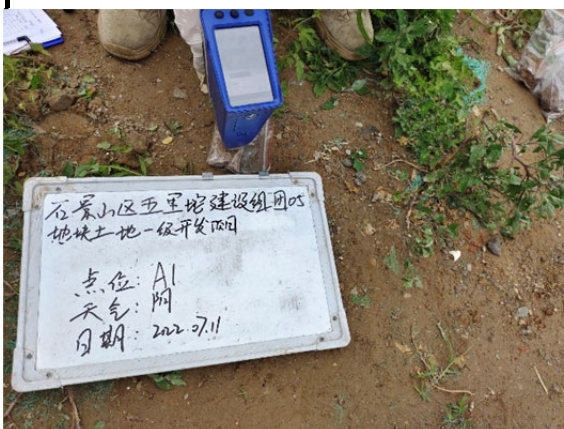 石景山区五里坨建设组团05
地块土地一级开发项目
点位：A1
天气：阴
日期：2022.07.11